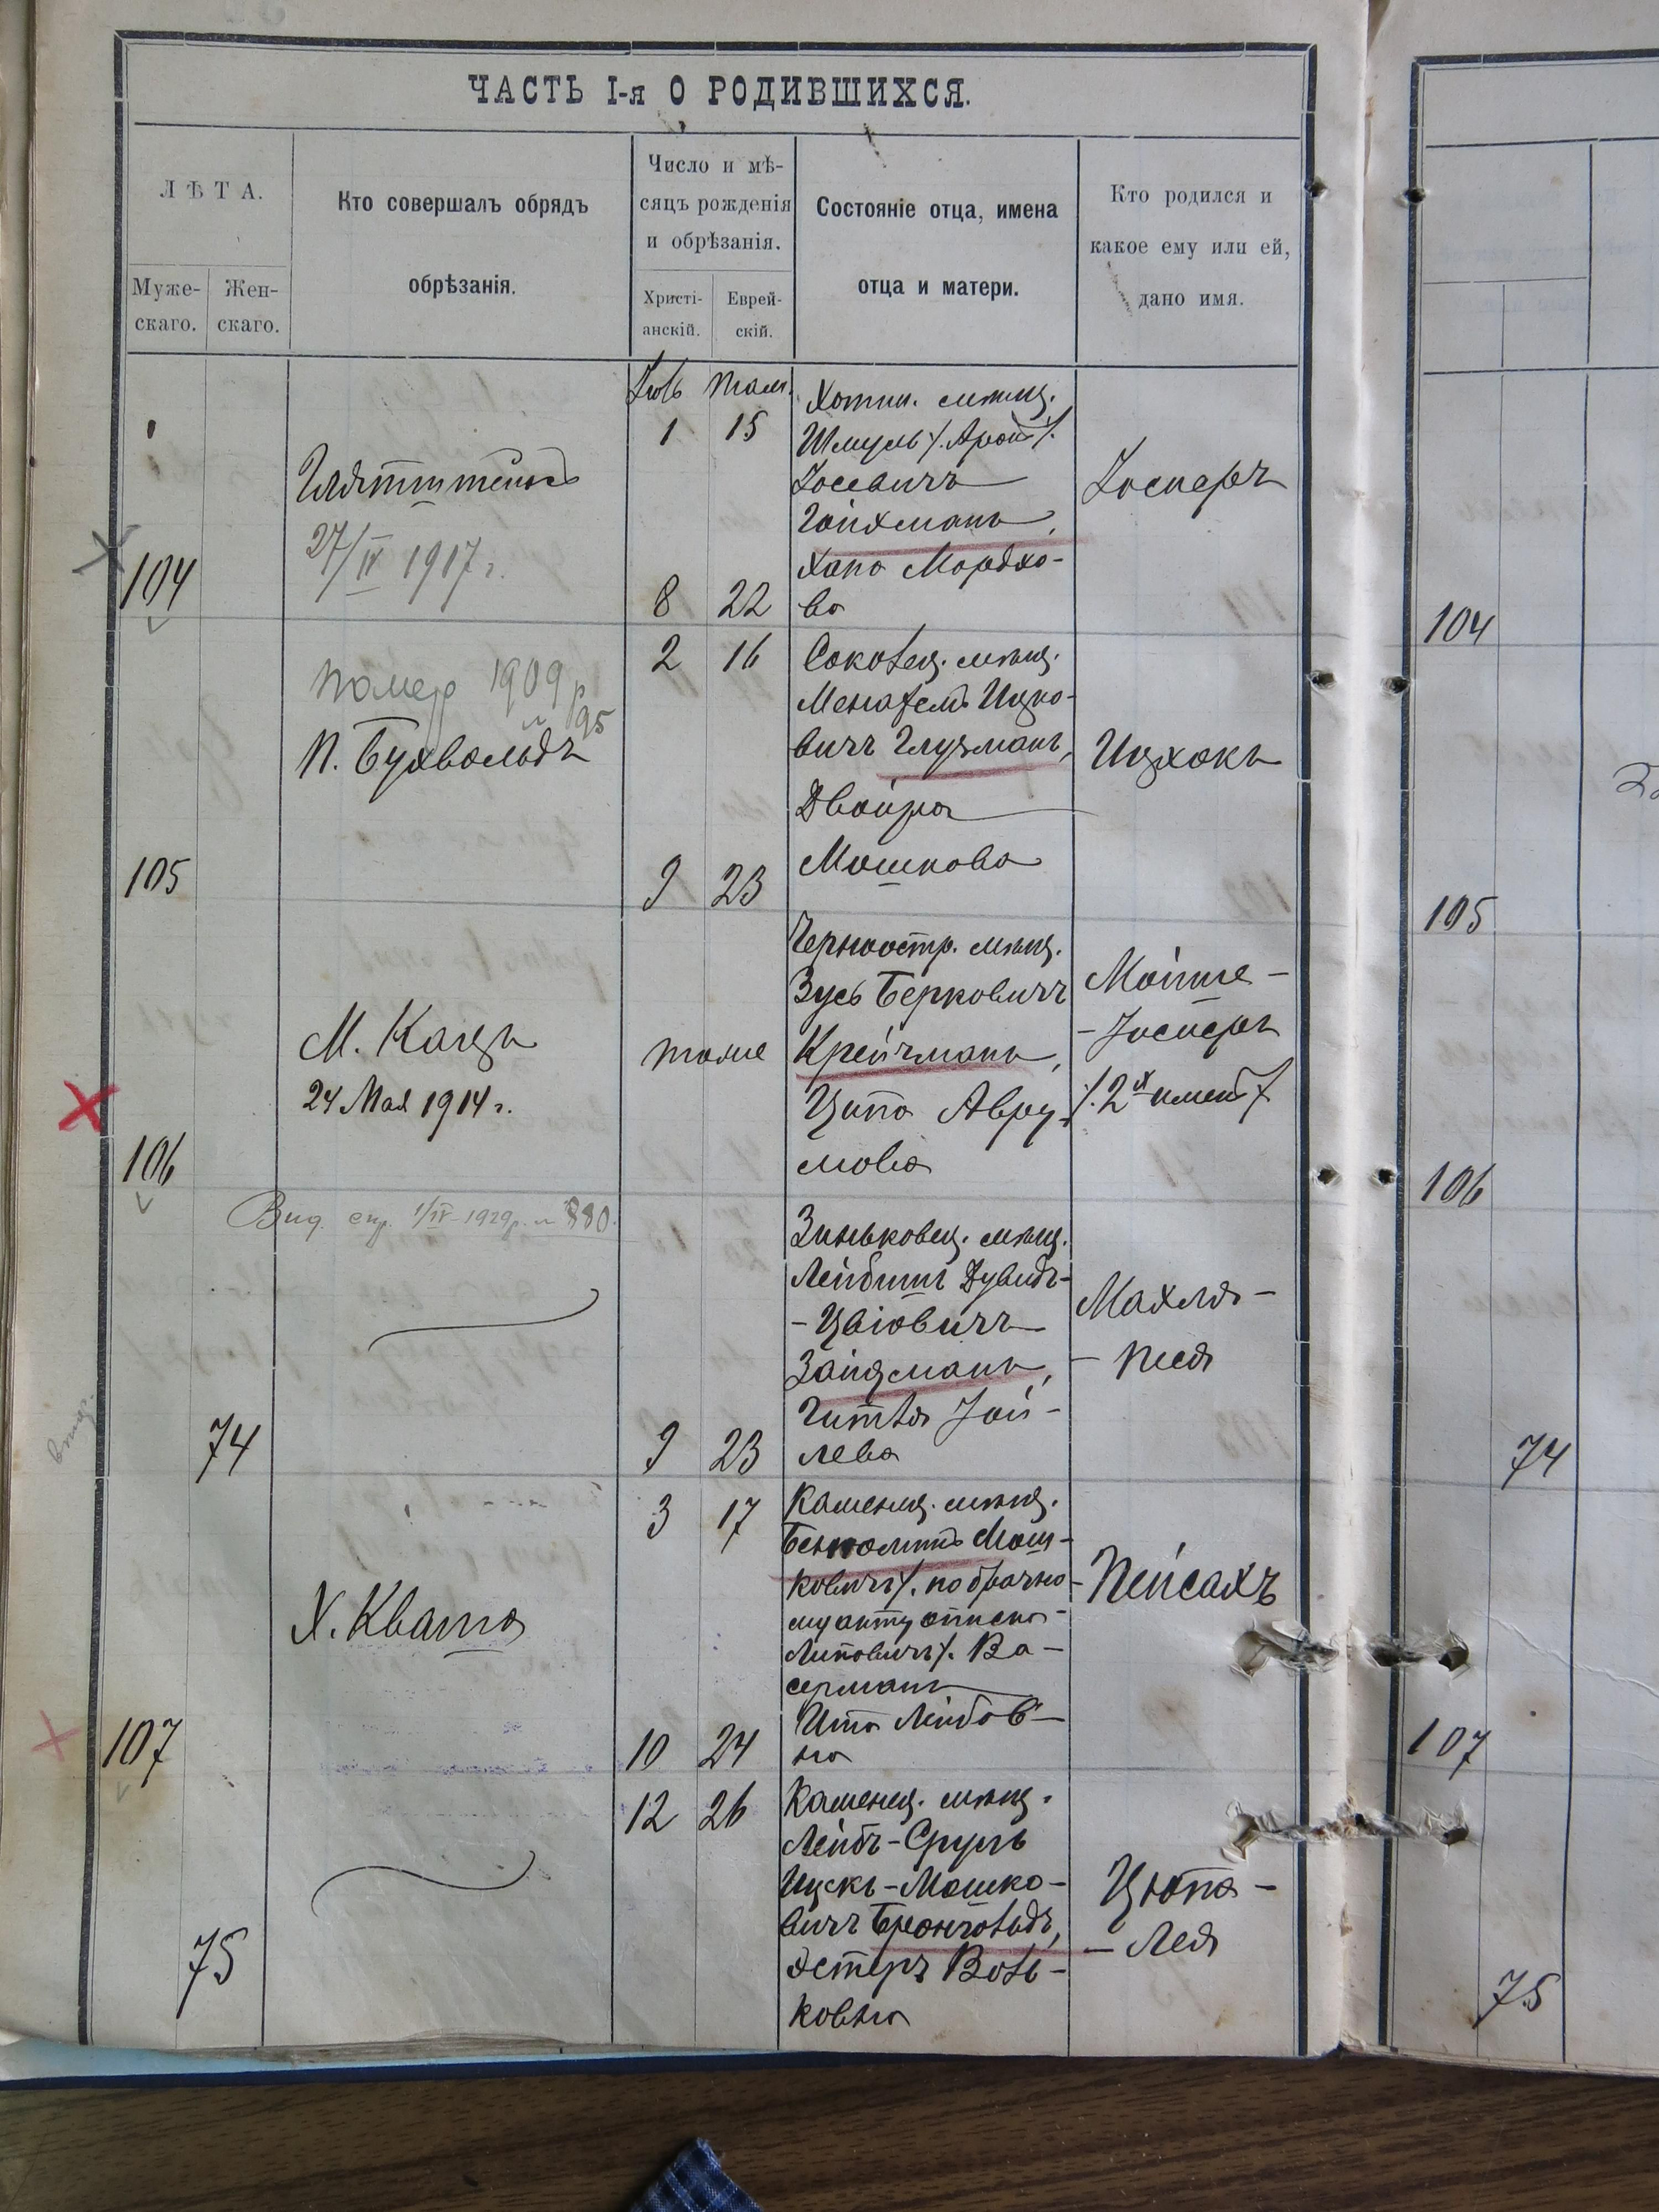 ЧАСТЬ I-я О РОДИВШИХСЯ.
ЛѢТА.
Муже-
скаго.
Жен-
скаго.
Кто совершалъ обрядъ
обрѣзанія.
Число и мѣ-
сяцъ рожденія
и обрѣзанія.
Христі-
анскій.
Еврей-
скій.
Состояніе отца, имена
отца и матери.
Кто родился и
какое ему или ей,
дано имя.
104
27/IV 1917 г.
Іюль Там.
1 15
8 22
Хотин. мѣщ.
Шмуль /. Арон /.
Іосевичъ
Гойхманъ,
Хана Мордко-
ва
Іосперъ
105
помер 1909 р
95
П. Бухвольдъ
2 16
9 23
мѣщ.
Менахемъ Ицко-
вичъ Глузманъ,
Двойра
Мошкова
Ицхокъ
106
М. Кацъ
24 Мая 1914 г.
тоже
Черноостр. мѣщ.
Зусь Берковичъ
Крейчманъ,
Ципа Авру-
мова
Мойше-
-Іосперъ
/. 2х имен /.
74
Вид. спр. 1/IV-1929 р. № 880.
9 23
Зиньковец. мѣщ.
Лейбишъ Дувидъ-
-Цвіовичъ
Зайдманъ,
Гитля Іой-
лева
Махля-
- Песя
107
Х. Кваша
3 17
10 24
Каменец. мѣщ.
Мош-
ковичъ /. по брачно-
му акту отписка
Липовичъ /. Ва-
серманъ
Ита Лейбов-
на
Пейсахъ
75
12 26
Каменец. мѣщ.
Лейбъ-Сруль
Ицкъ-Мошко-
вичъ Бронголдъ,
Эстеръ Воль-
ковна
Цюпа-
- Лея
104
105
106
74
107
75